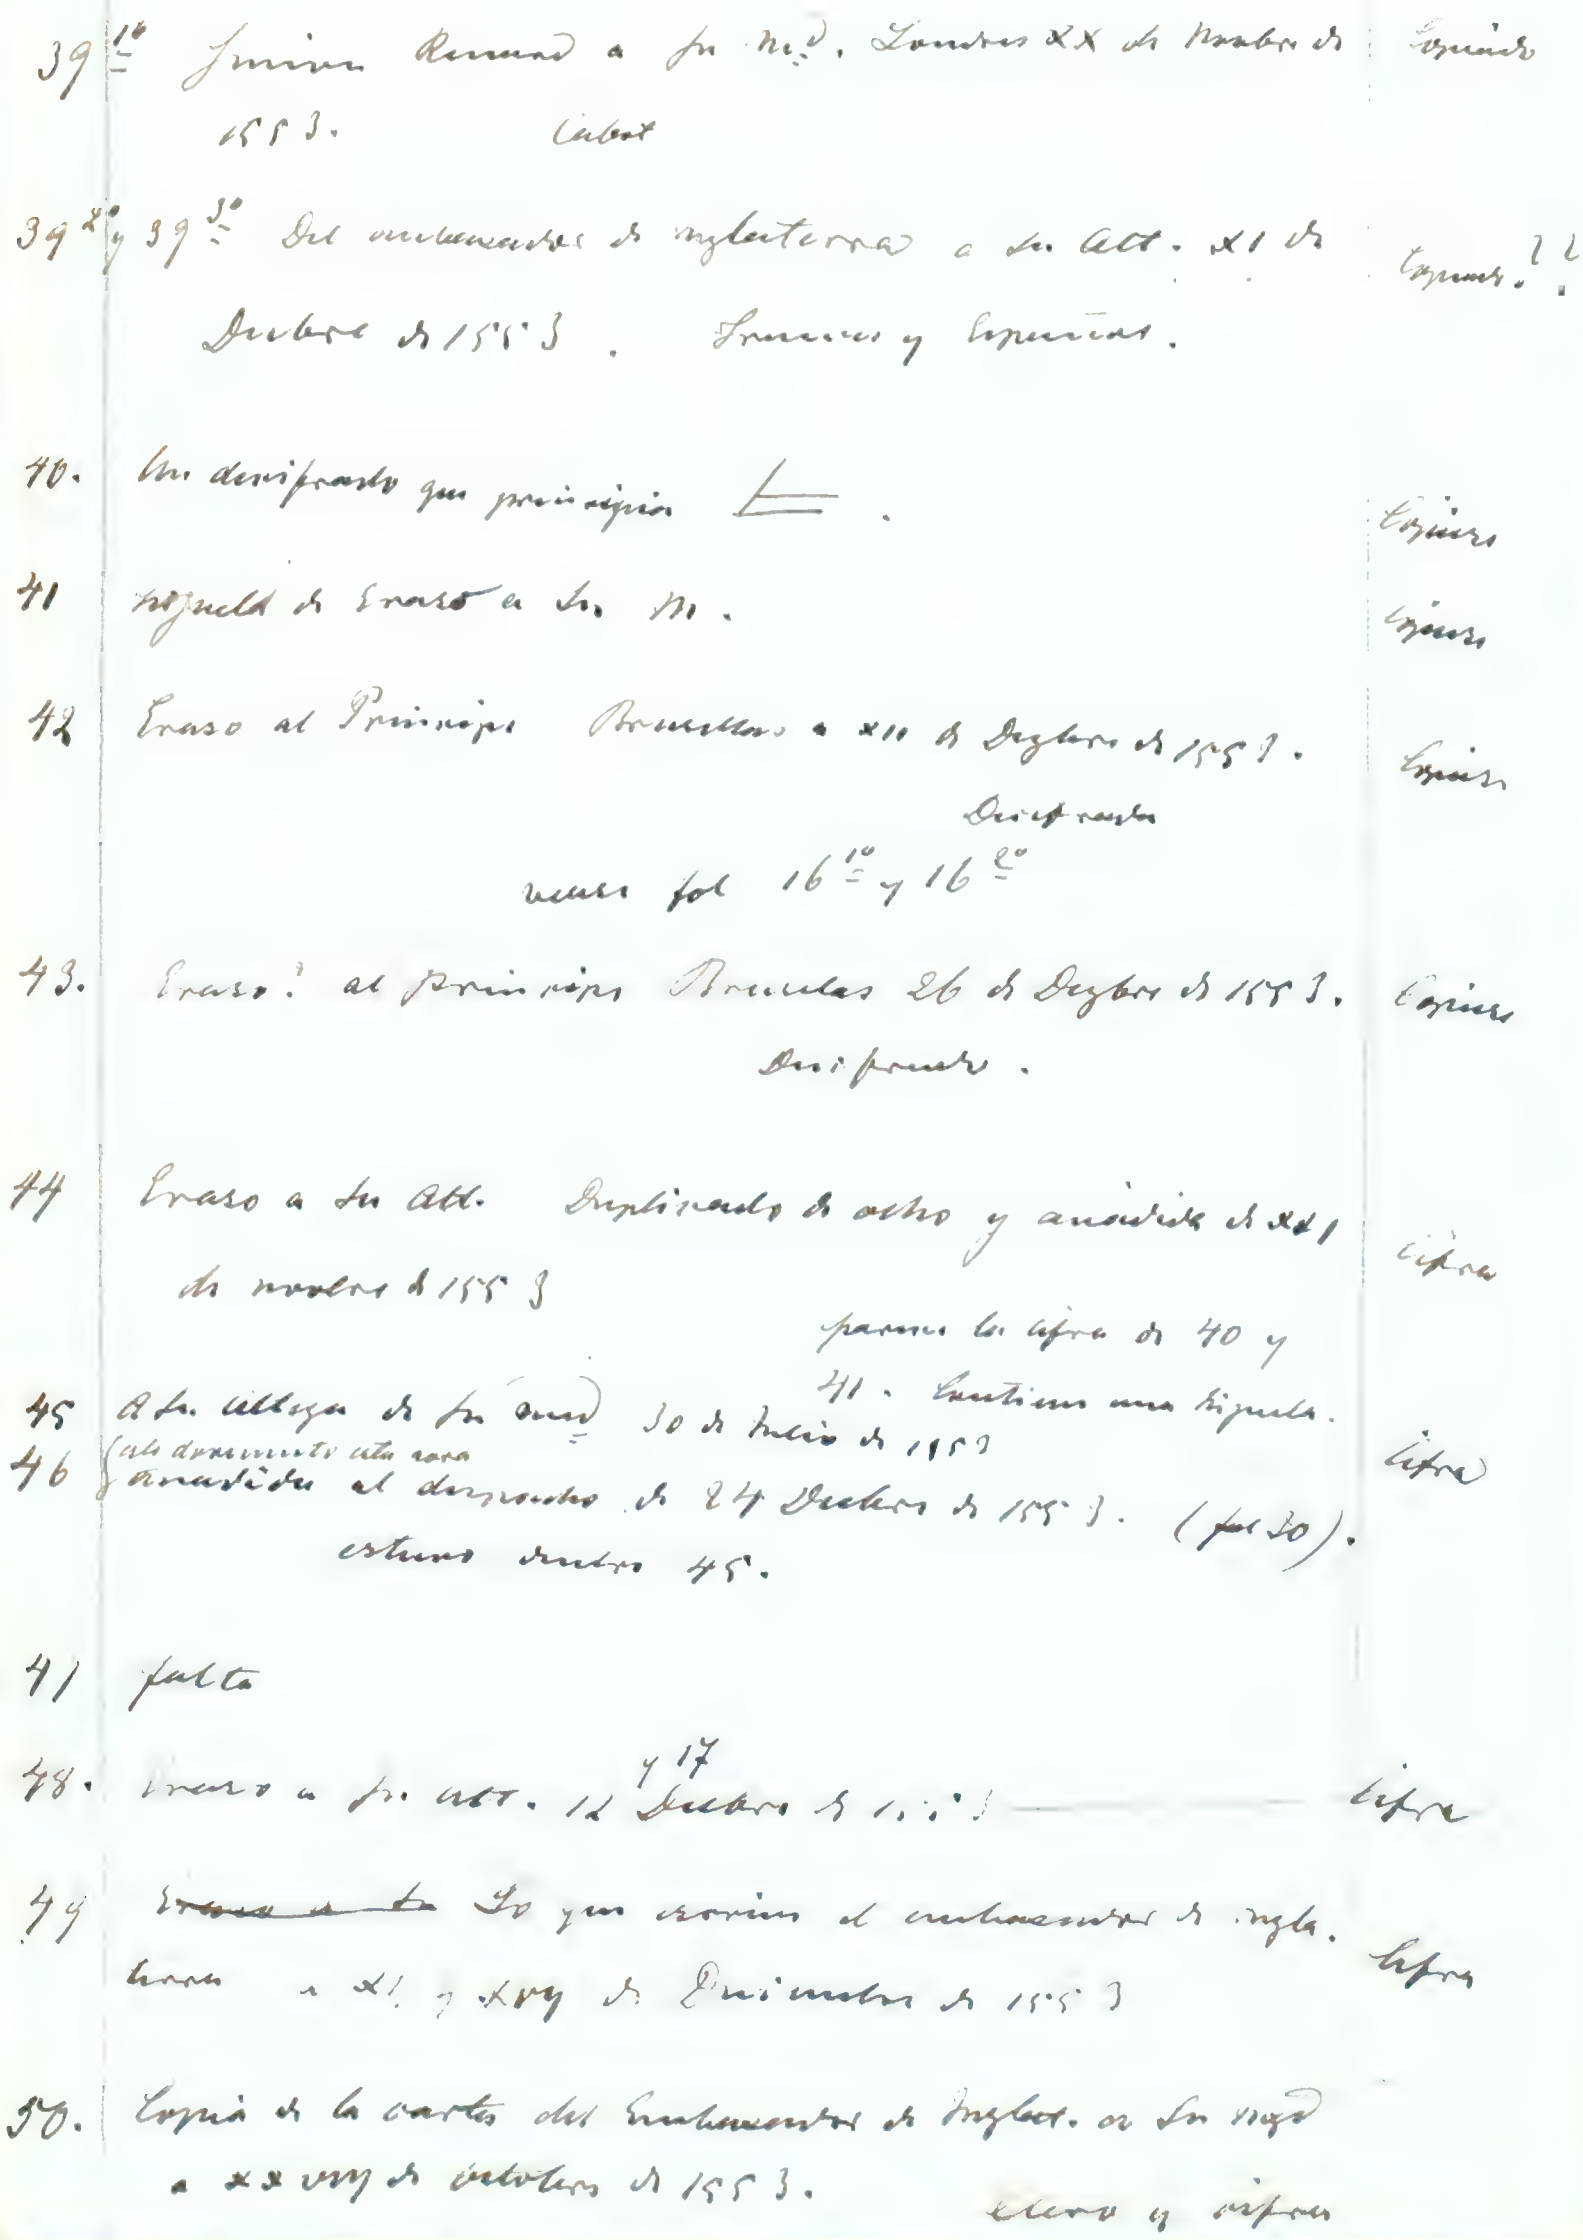 39 1º Simon Renard a su M.d. Londres XX de Novbre de Copiado
1553. Cabot
39 2º y 39 3º Del embaxador de Inglaterra a su Alt. XI de Copiado.??
Diebre de 1553. Frances y Español.
40. Un descifrado que principia . Copiado
41 Zifuela de Eraso a Su M. Copiado
42 Eraso al Principe Bruselas a XII de Dezbre de 1553. Copiado
Descifrada
vease fol 16 1º y 16 2º
43. Eraso? al Principe Bruselas 26 de Dezbre de 1553. Copiado
Descifrado.
44 Eraso a Su Alt. Duplicado de ocho y añadida de XXI Cifra
de novbre de 1553
parece la cifra de 40 y
41. Contiene una
45 A Su Alteza de su 30 de Julio de 1553
este documento esta
46 añadida al despacho de 24 Diebre de 1553. (fol 30). Cifra
estuvo dentro 45.
47 falta
y 17
48. Eraso a Su Alt. 12 Diebre de 1553 Cifra
49 Eraso a Su Lo que escrive el embaxador de Ingla-
terra a XI y XVIJ de Diziembre de 1553 Cifra
50. Copia de la carta del Embaxador de Inglat. a Su Magd
a XXVIIJ de octobre de 1553.
claro y cifra